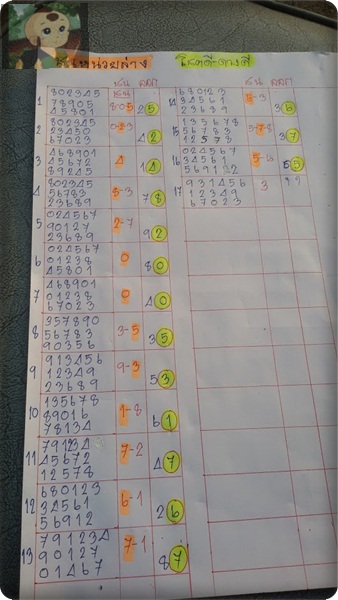 หน่วยล่าง โชคดี-ดวงดี
เด่น ออก เด่น ออก
1 802345
78905
45801
8-0-5 25
2 802345
23450
67023
0-2-3 42
3 468901
45672
89245
4 14
4 802345
56783
23689
8-3 78
5 024567
90127
23689
2-7 92
6 024567
01238
45801
0 80
7 468901
01238
67023
0 40
8 357890
56783
90356
3-5 35
9 913456
12349
23689
9-3 53
10 135678
89016
78134
1-8 61
11 791234
45672
12578
7-2 47
12 680123
34561
56912
6-1 26
13 791234
90127
01467
7-1 87
14 680123
34561
23689
36
15 135678
56783
12578
5-7-8 37
16 024567
34561
55
17 931456
12349
67023
3